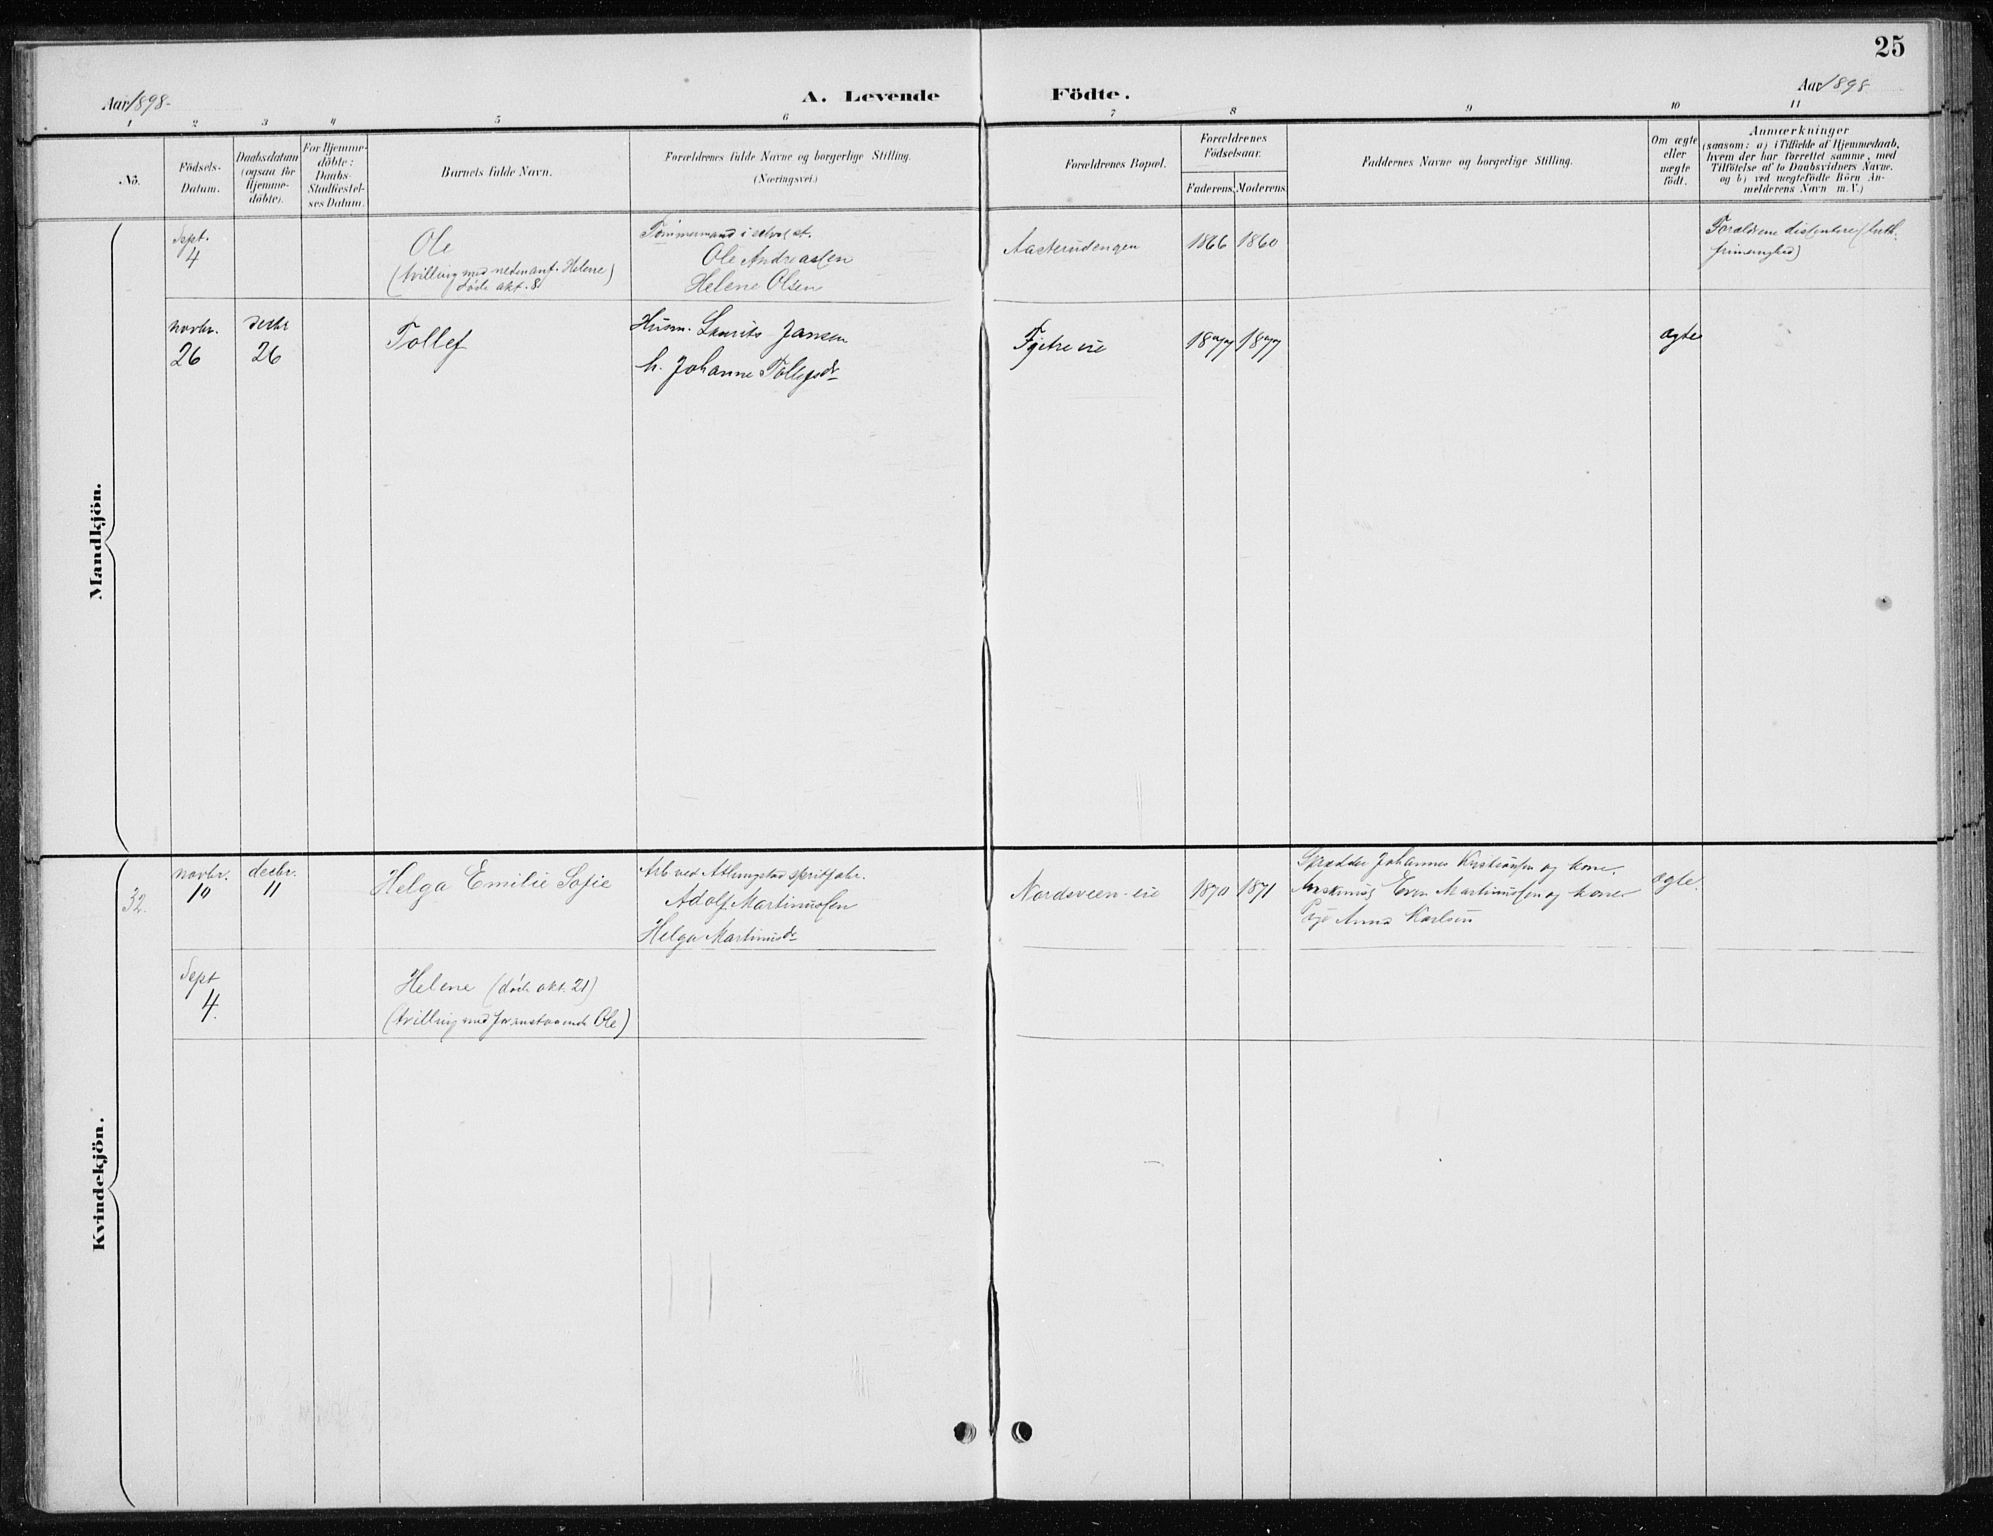 25
Aar 1898.
A. Levende Födte.
Aar 1898
1 2 3 4 5 6 7 8 9 10 11
No.
Födsels-
Datum.
Daabsdatum
(ogsaa for
Hjemme-
döbte).
For Hjemme-
döbte:
Daabs-
Stadfæstel-
ses Datum.
Barnets fulde Navn.
Forældrenes fulde Navne og borgerlige Stilling.
(Næringsvei.)
Forældrenes Bopæl.
Forældrenes
Födselsaar.
Faderens. Moderens.
Faddernes Navne og borgerlige Stilling.
Om ægte
eller
uægte
födt.
Anmærkninger
(saasom: a) i Tilfælde af Hjemmedaab,
hvem der har forrettet samme, med
Tilföielse af to Daabsvidners Navne.
og b) ved uægtefödte Börn An-
melderens Navn m. V.)
Mandkjön.
Sept.
4
Ole
(tvilling med nedenanf. Helene)
döde okt. 8
Tömmermand i
Ole Andreassen
Helene Olsen
Aasterudengen
1866 1860
Forældrene dissentere (luth.
frimenighed)
novbr.
26
decbr
26
Tollef
Husm. Laurits Jansen
h. Johanne Tollefsdr
Fjetre eie
1877 1877
ægte
Kvindekjön.
32.
novbr.
10
decbr.
11
Helga Emilie Sofie
Arb ved Atlungstad spritfabr.
Adolf Martinussen
Helga Martinusdr
Nordsveen-eie
1870 1871
Skrædder Johannes Kristiansen og kone,
Even Martinussen og kone
Pige Anna Karlsen
ægte.
Sept
4.
Helene (död okt. 21)
(tvilling med foranstaaende Ole)